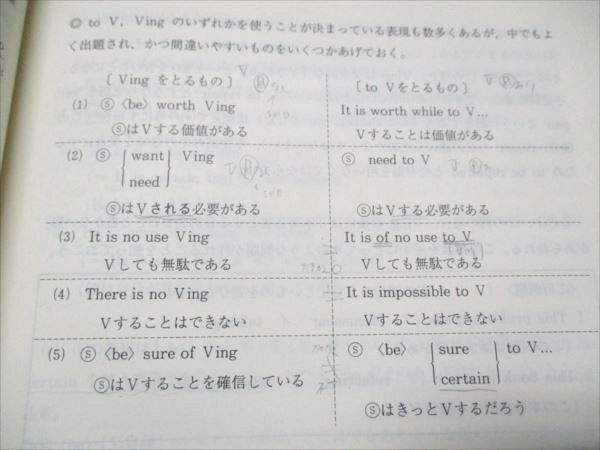 ◎ to V, Ving のいずれかを使うことが決まっている表現も数多くあるが，中でもよ
く出題され，かつ間違いやすいものをいくつかあげておく。
〔Ving をとるもの〕 〔to Vをとるもの〕
(1) Ⓢ〈be〉worth Ving It is worth while to V…
ⓈはVする価値がある Vすることは価値がある
(2) Ⓢ want need Ving Ⓢ need to V
ⓈはVされる必要がある ⓈはVする必要がある
(3) It is no use Ving It is of no use to V
Vしても無駄である Vしても無駄である
(4) There is no Ving It is impossible to V
Vすることはできない Vすることはできない
(5) Ⓢ〈be〉sure of Ving Ⓢ〈be〉sure certain to V…
ⓈはVすることを確信している
ⓈはきっとVするだろう